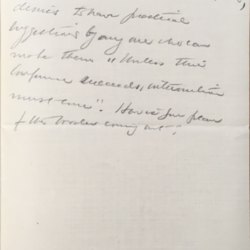 desires to have practical
suggestions by any one who can
make them. "Unless this
conference succeeds, intervention
must come". How is your plan
of the coming out?